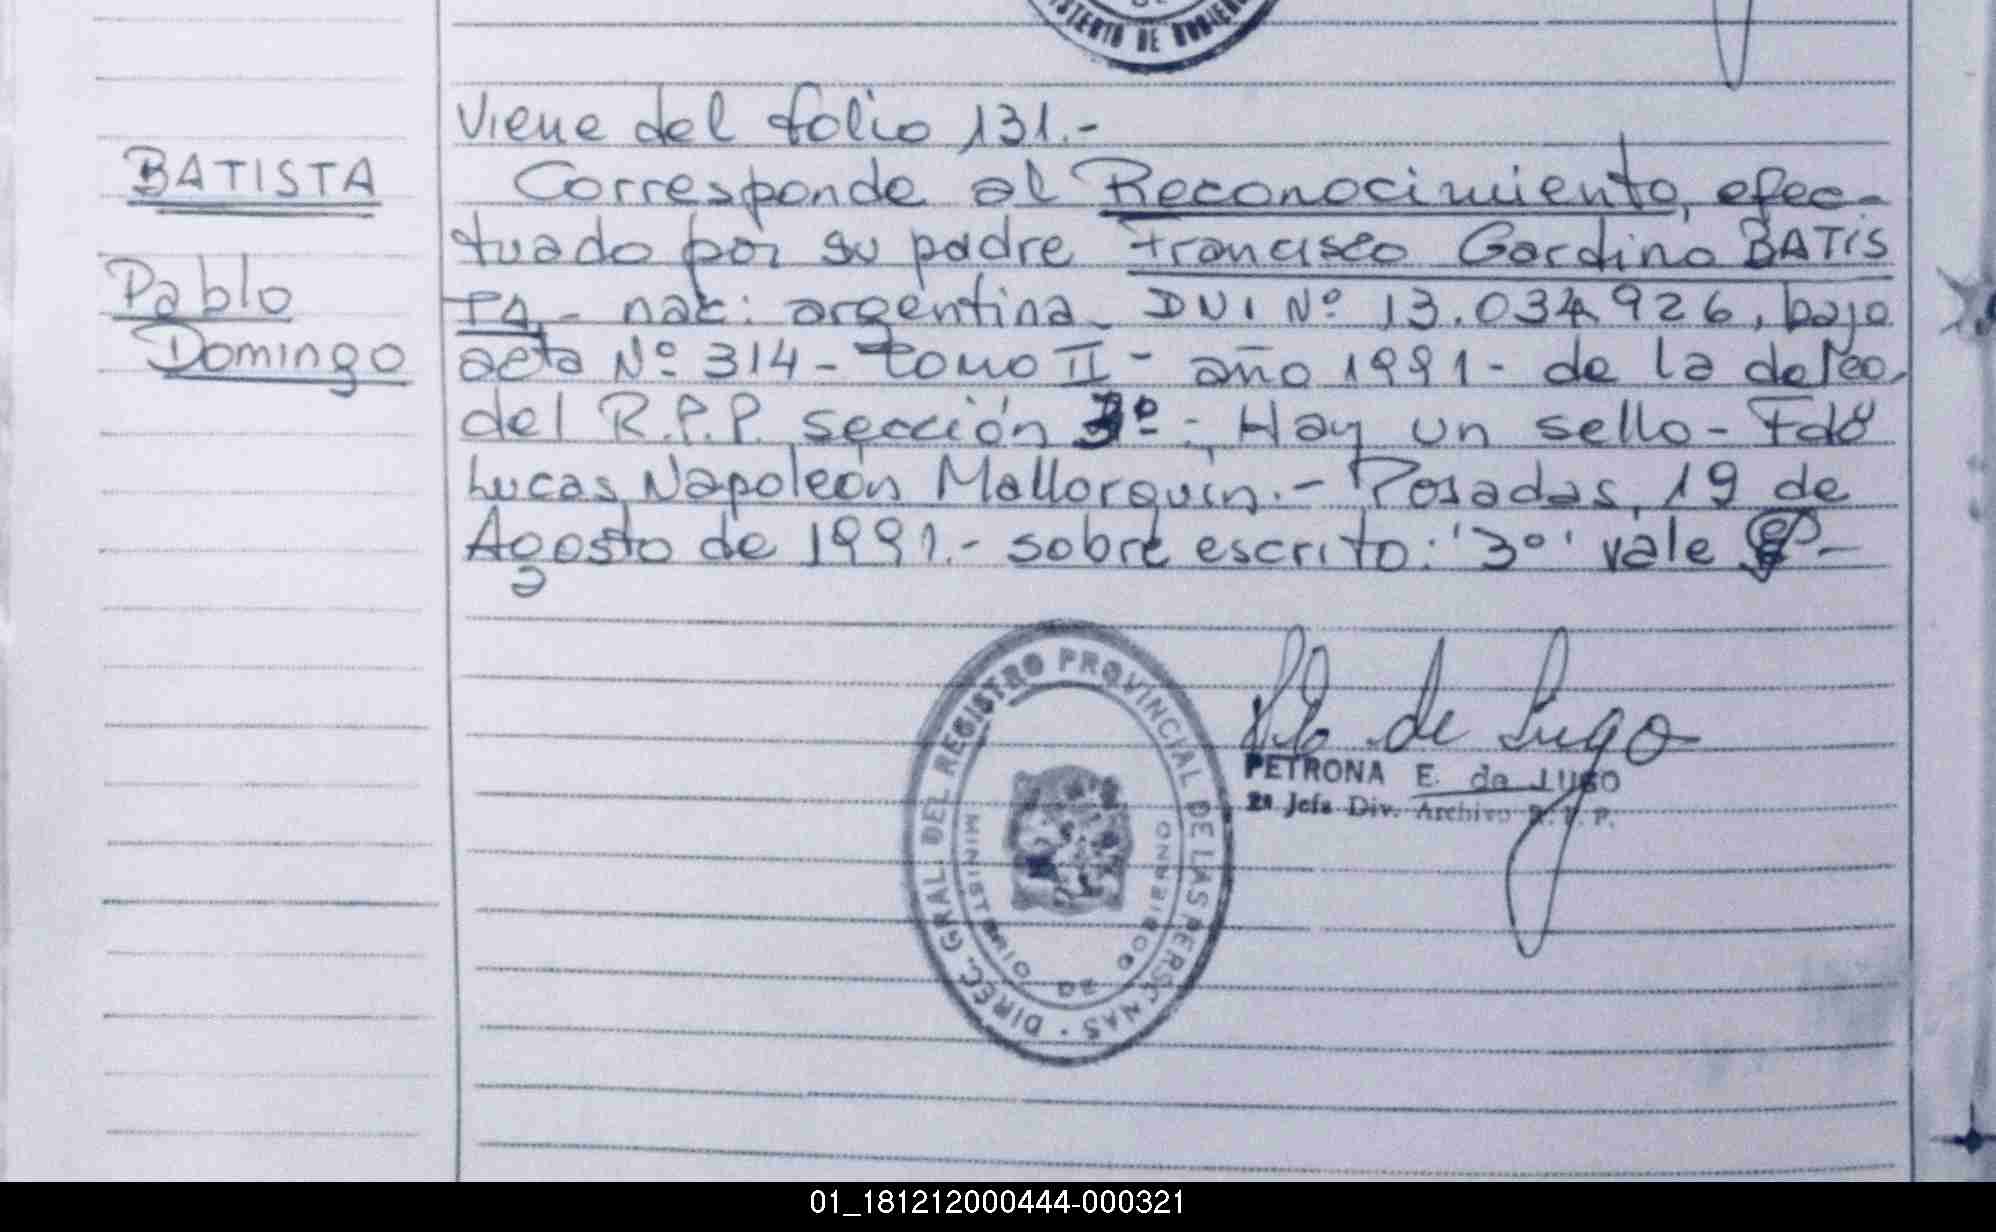 MINISTERIO DE GOBIERNO
Viene del folio 131.-
BATISTA
Corresponde al Reconocimiento, efec-
tuado por su padre Francisco Gardino BATIS
Pablo
TA - nac: argentina - DNI Nº 13.034.926, bajo
Domingo
acta Nº 314 - tomo II - año 1991 - de la
del R.P.P. sección 3º - Hay un sello - Fdo
Lucas Napoleón Mallorquín.- Posadas, 19 de
Agosto de 1991.- sobre escrito: '3º' vale
DIREC. GRAL. DEL REGISTRO PROVINCIAL DE LAS PERSONAS
MINISTERIO DE GOBIERNO
de Lugo
PETRONA E. de LUGO
2ª Jefa Div. Archivo R.P.P.
01_181212000444-000321